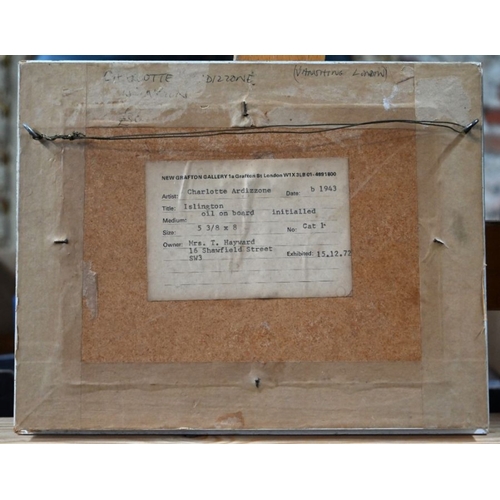 CHARLOTTE DIZZONE (VANISHING LONDON)
NEW GRAFTON GALLERY 1a Grafton St London W1X 3LB 01-499 1800
Artist: Charlotte Ardizzone Date: b 1943
Title: Islington
Medium: oil on board initialled
Size: 5 3/8 x 8 No: Cat 1
Owner: Mrs. T. Hayward
16 Shawfield Street
SW3 Exhibited: 15.12.72